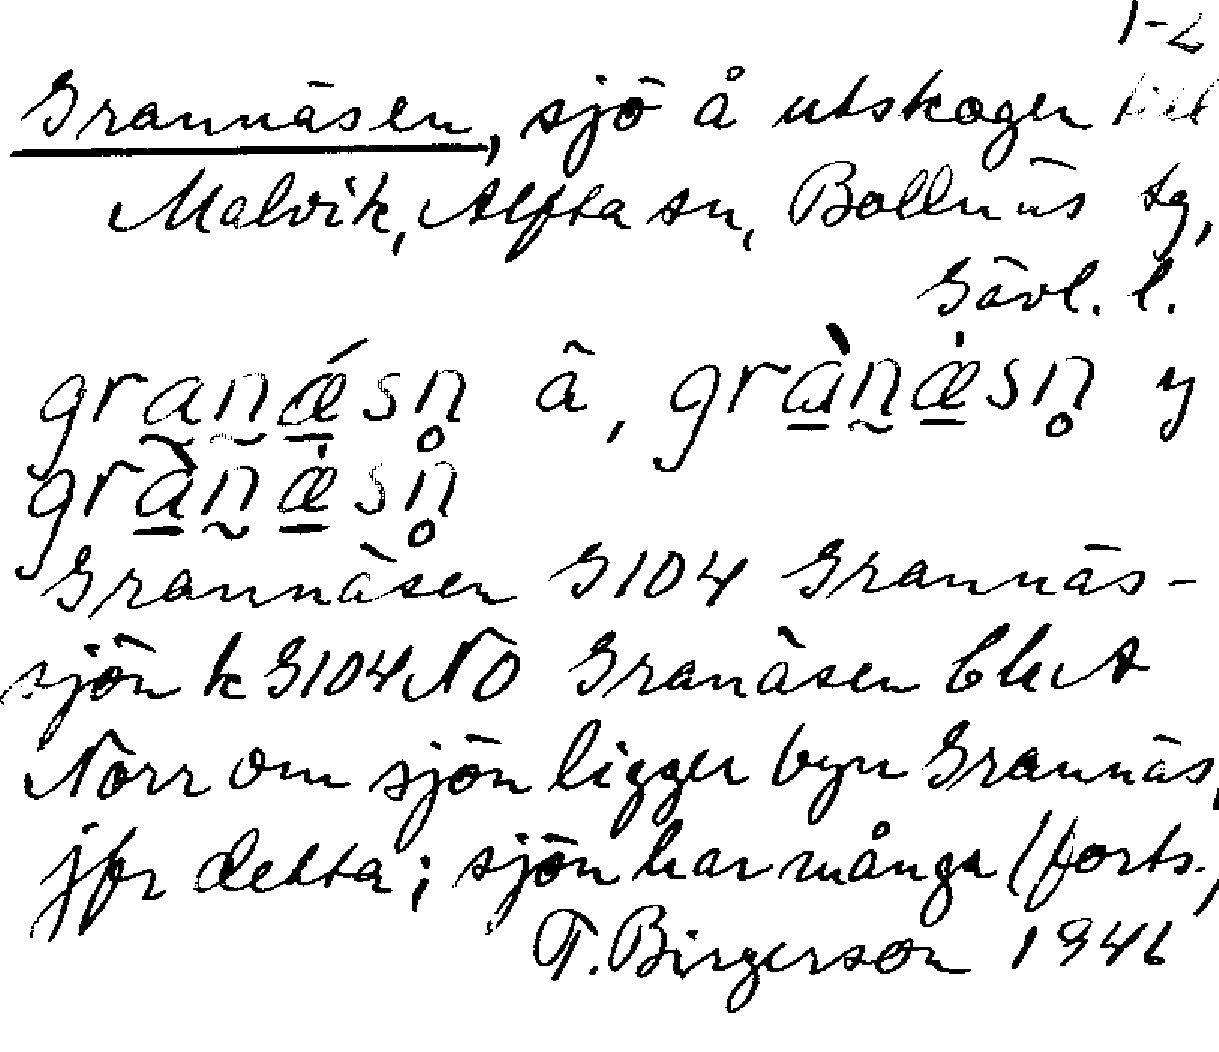 1-2
Grannäsen, sjö å utskogen till
Malvik, Alfta sn, Bollnäs tg,
Gävl. l.
granǽsn̥ ä, grànæ̇sn̥ y
grànæ̇sn̥
Grannäsen G104 Grannäs-
sjön k G104NÖ Granäsen blad
Norr om sjön ligger byn Grannäs,
jfr detta; sjön har många (forts.,
T. Birgerson 1946